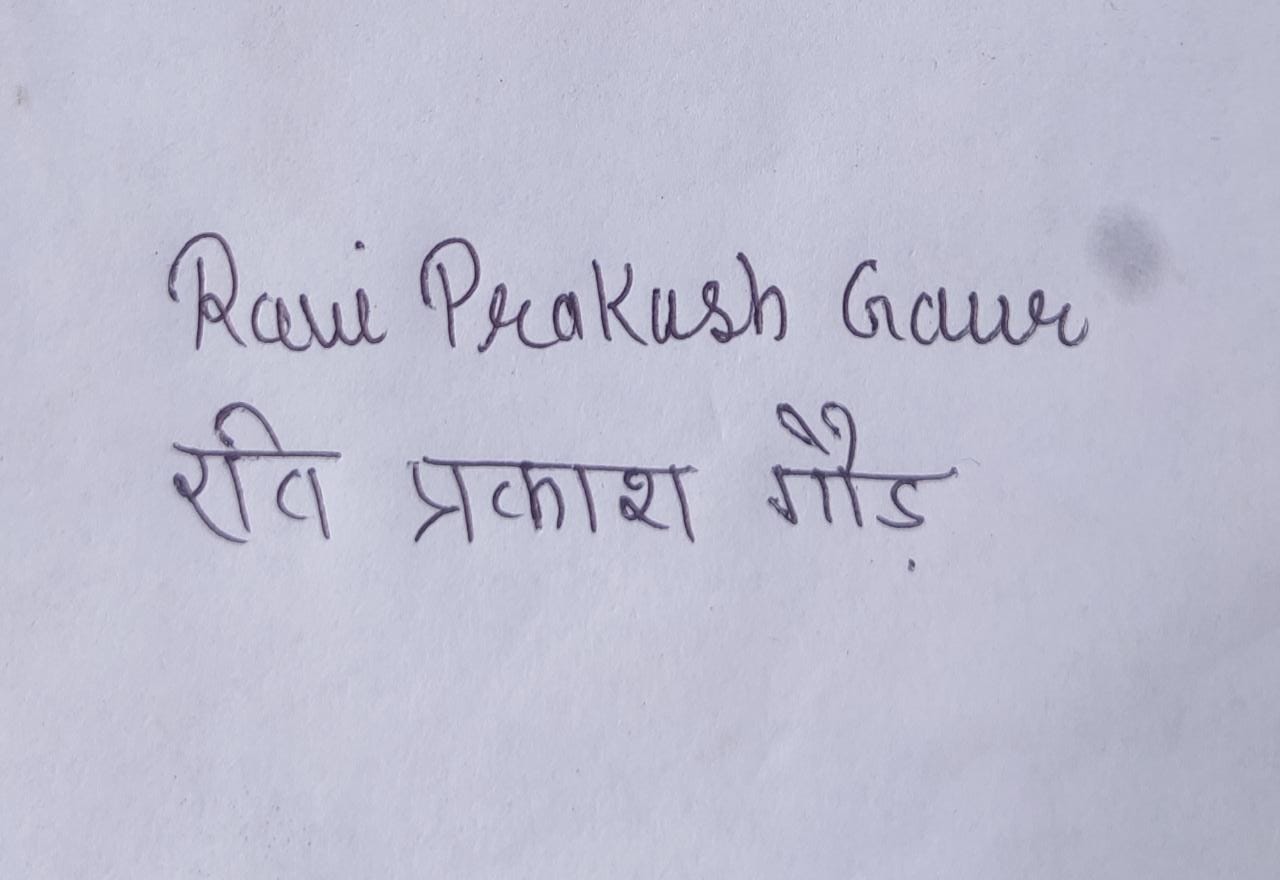 Ravi Prakash Gaur
रवि प्रकाश गौड़